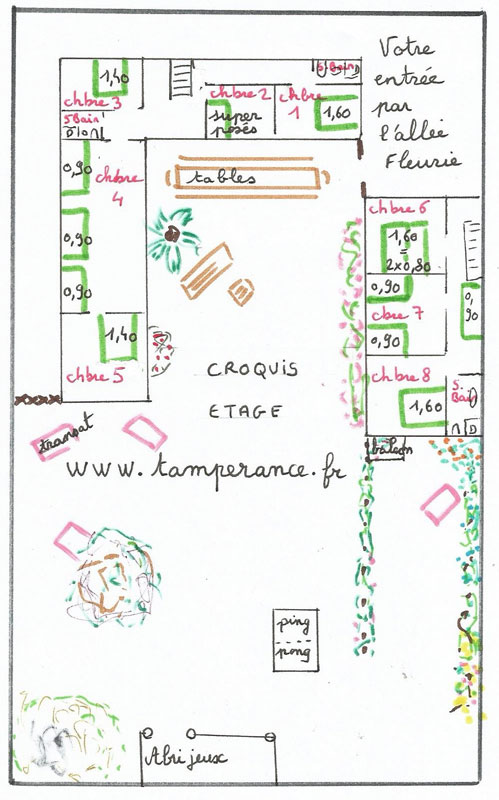 Votre
entrée
par
l'allée
Fleurie
1,40
chbre 3
S Bain
chbre 2
super
posés
chbre
1
1,60
S. Bain
0,90
chbre
4
0,90
0,90
1,40
chbre 5
tables
chbre 6
1,60
=
2x0,80
0,90
cbre 7
0,90
0,
90
chbre 8
1,60
S.
Bain
balcon
CROQUIS
ETAGE
transat
www.tamperance.fr
ping
pong
Abri jeux